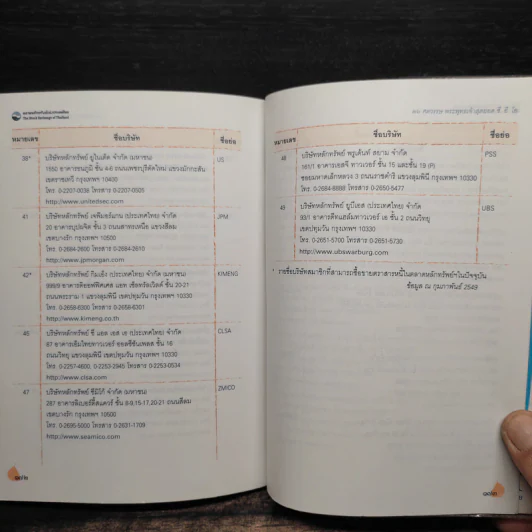 ตลาดหลักทรัพย์แห่งประเทศไทย
The Stock Exchange of Thailand
หมายเลข ชื่อบริษัท ชื่อย่อ
38* บริษัทหลักทรัพย์ ยูไนเต็ด จำกัด (มหาชน) US
1550 อาคารธนภูมิ ชั้น 4-6 ถนนเพชรบุรีตัดใหม่ แขวงมักกะสัน
เขตราชเทวี กรุงเทพฯ 10400
โทร. 0-2207-0038 โทรสาร 0-2207-0505
http://www.unitedsec.com
41 บริษัทหลักทรัพย์ เจพีมอร์แกน (ประเทศไทย) จำกัด JPM
20 อาคารบุปผจิต ชั้น 3 ถนนสาทรเหนือ แขวงสีลม
เขตบางรัก กรุงเทพฯ 10500
โทร. 0-2684-2600 โทรสาร 0-2684-2610
http://www.jpmorgan.com
42* บริษัทหลักทรัพย์ กิมเอ็ง (ประเทศไทย) จำกัด (มหาชน) KIMENG
999/9 อาคารดิออฟฟิศเศส แอท เซ็ทรัลเวิลด์ ชั้น 20-21
ถนนพระราม 1 แขวงลุมพินี เขตปทุมวัน กรุงเทพฯ 10330
โทร. 0-2658-6300 โทรสาร 0-2658-6301
http://www.kimeng.co.th
46 บริษัทหลักทรัพย์ ซี แอล เอส เอ (ประเทศไทย) จำกัด CLSA
87 อาคารเอ็มไทยทาวเวอร์ ออลซีซั่นเพลส ชั้น 16
ถนนวิทยุ แขวงลุมพินี เขตปทุมวัน กรุงเทพฯ 10330
โทร. 0-2257-4600, 0-2253-2945 โทรสาร 0-2253-0534
http://www.clsa.com
47 บริษัทหลักทรัพย์ ซีมิโก้ จำกัด (มหาชน) ZMICO
287 อาคารลิเบอร์ตี้สแควร์ ชั้น 8-9,15,17,20-21 ถนนสีลม
เขตบางรัก กรุงเทพฯ 10500
โทร. 0-2695-5000 โทรสาร 0-2631-1709
http://www.seamico.com
หมายเลข ชื่อบริษัท ชื่อย่อ
48 บริษัทหลักทรัพย์ พรูเด้นท์ สยาม จำกัด PSS
ซอยมหาดเล็กหลวง 3 ถนนราชดำริ แขวงลุมพินี กรุงเทพฯ 10330
โทร. 0-2684-8888 โทรสาร 0-2650-5477
49 บริษัทหลักทรัพย์ ยูบีเอส (ประเทศไทย) จำกัด UBS
93/1 อาคารดิทแฮล์มทาวเวอร์ เอ ชั้น 2 ถนนวิทยุ
เขตปทุมวัน กรุงเทพฯ 10330
โทร. 0-2651-5700 โทรสาร 0-2651-5730
http://www.ubswarburg.com
* ข้อมูล ณ กุมภาพันธ์ 2549